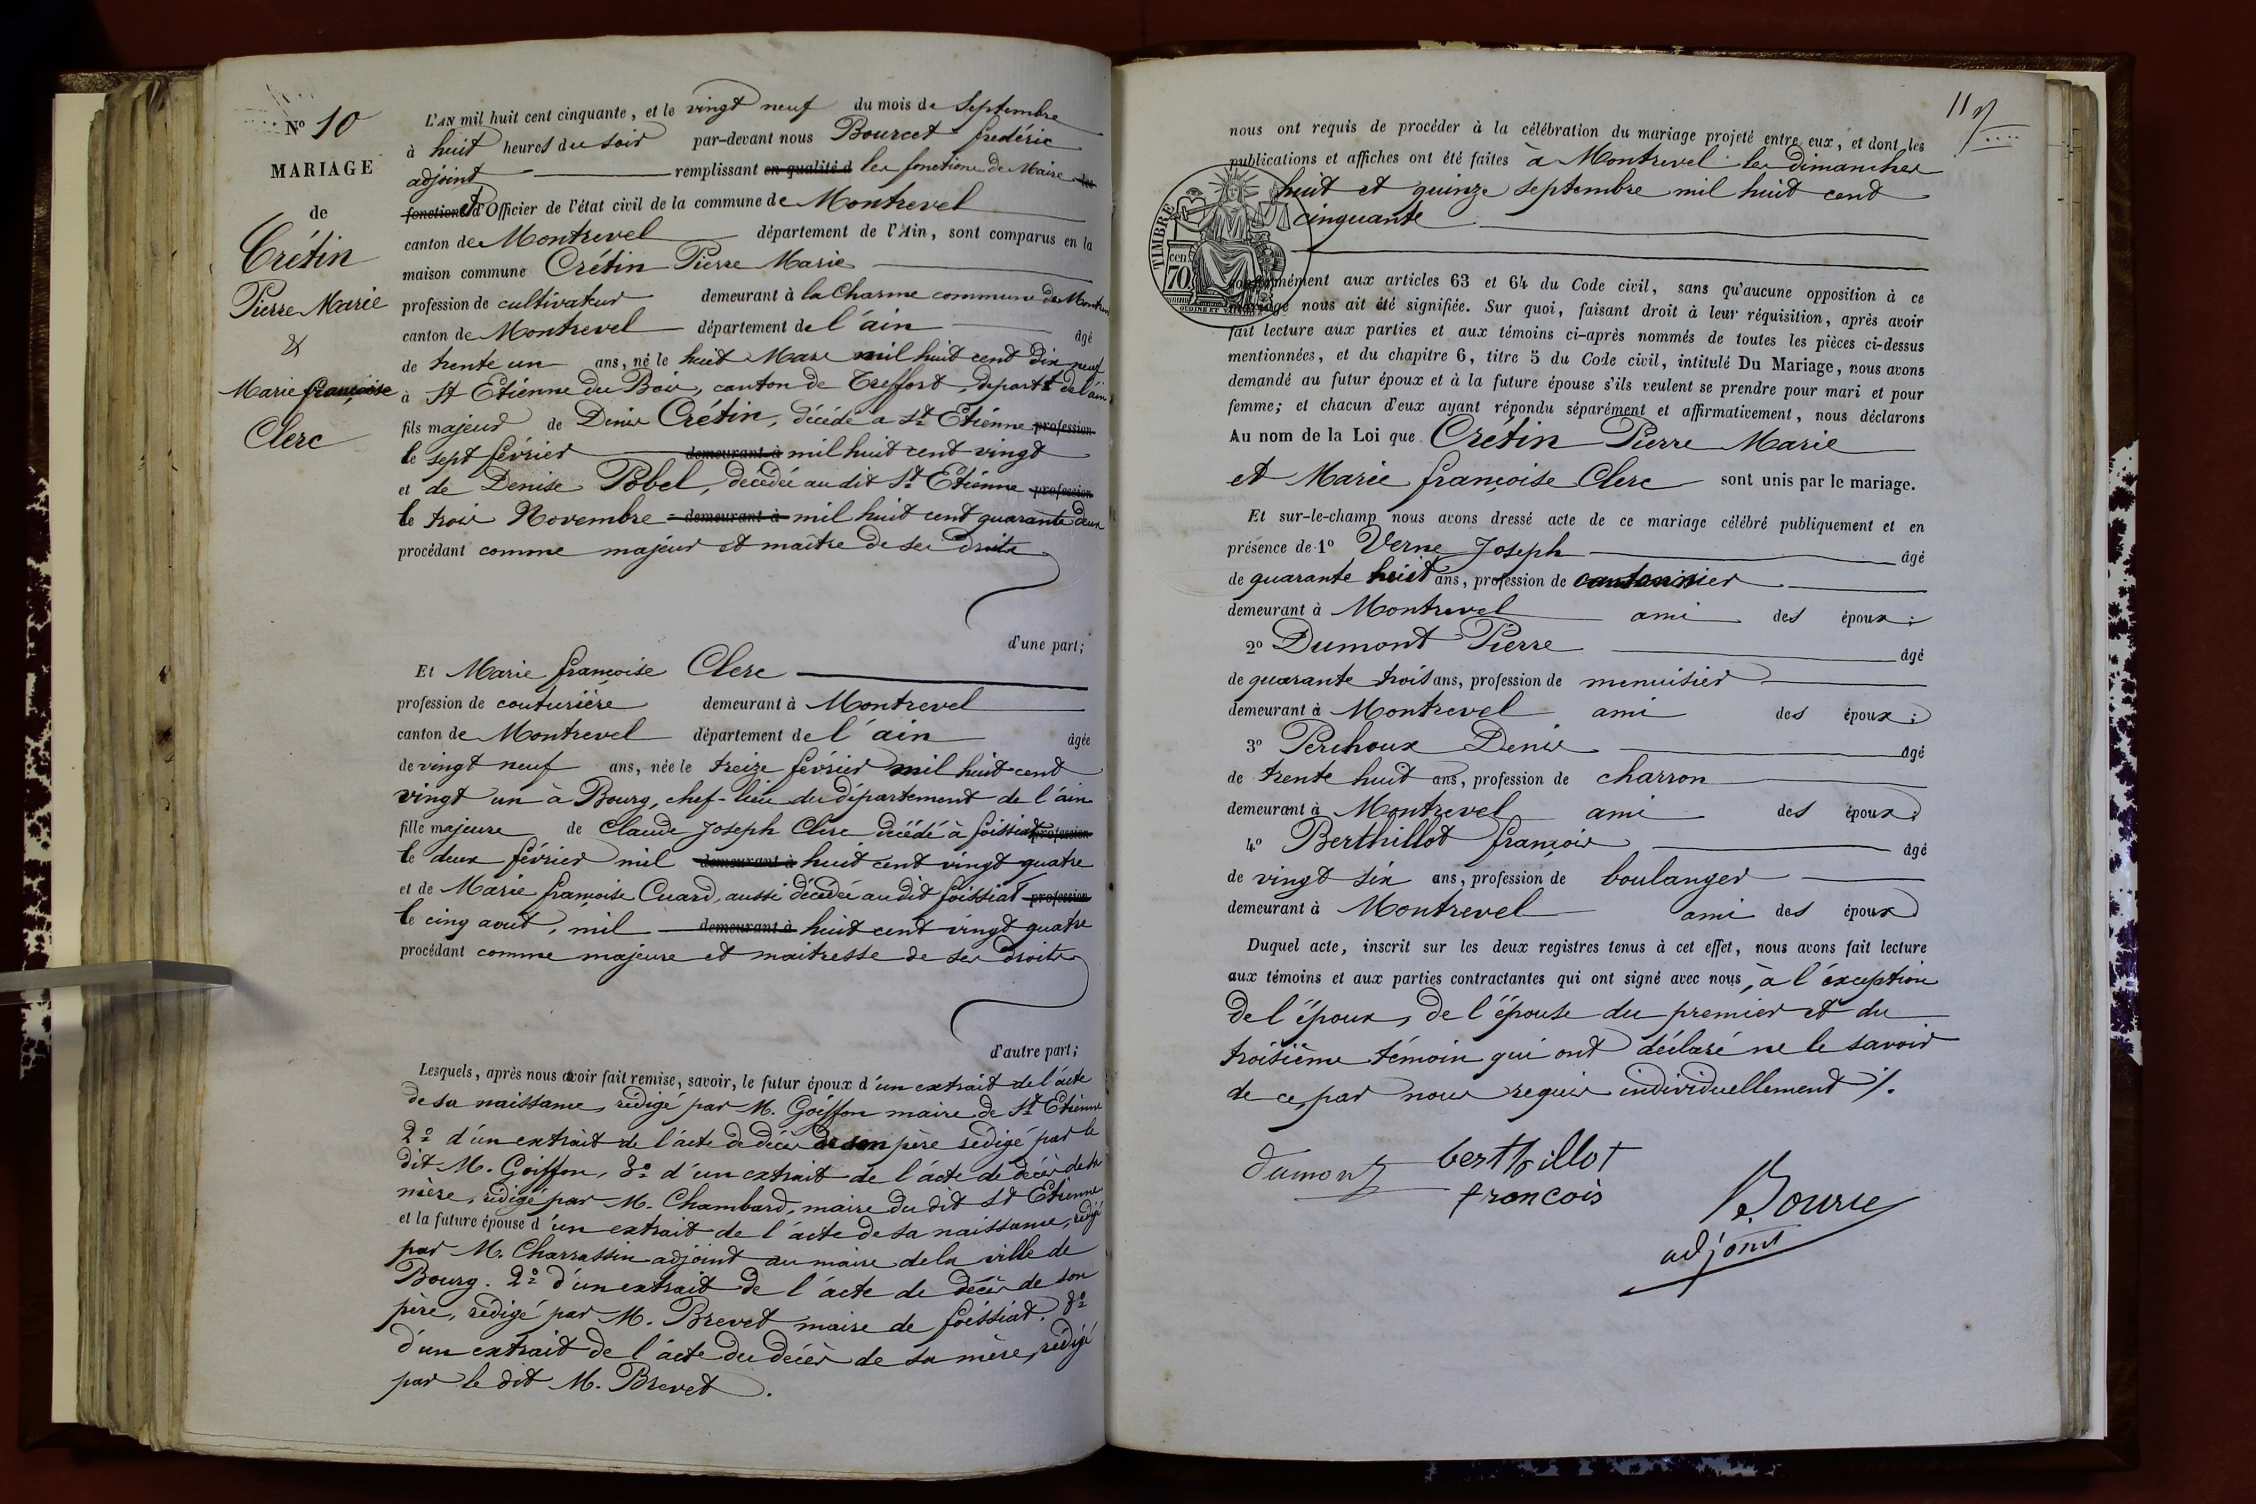 Nº 10
MARIAGE
de
Crétin
Pierre Marie
&
Marie françoise
Clerc
L'AN mil huit cent cinquante, et le vingt neuf du mois de Septembre
à huit heures du soir par-devant nous Bourcet frédéric
adjoint remplissant en qualité d les fonctions de Maire les
fonctions et d'Officier de l'état civil de la commune de Montrevel
canton de Montrevel département de l'Ain, sont comparus en la
maison commune Crétin Pierre Marie
profession de cultivateur demeurant à la Charme commune de Montrevel
canton de Montrevel département de l'ain âgé
de trente un ans, né le huit Mars mil huit cent dix neuf
à St Etienne du Bois, canton de Treffort, departt de l'ain
fils majeur de Denis Crétin, décédé a St Etienne profession
le sept février demeurant à mil huit cent vingt
et de Denise Pobel, décédée au dit St Etienne profession
le trois Novembre demeurant à mil huit cent quarante deux
procédant comme majeur et maître de ses droits
d'une part;
Et Marie françoise Clerc
profession de couturière demeurant à Montrevel
canton de Montrevel département de l'ain âgée
de vingt neuf ans, née le treize février mil huit cent
vingt un à Bourg, chef-lieu du département de l'ain
fille majeure de Claude Joseph Clerc décédé à foissiat profession
le deux février mil demeurant à huit cent vingt quatre
et de Marie françoise Cuard, aussi décédée au dit foissiat profession
le cinq aout, mil demeurant à huit cent vingt quatre
procédant comme majeure et maitresse de ses droits
d'autre part;
Lesquels, après nous avoir fait remise, savoir, le futur époux d'un extrait de l'acte
de sa naissance, rédigé par M. Goiffon maire de St Etienne
2º d'un extrait de l'acte de décès de son père rédigé par le
dit M. Goiffon, 3º d'un extrait de l'acte de décès de sa
mère, rédigé par M. Chambard, maire du dit St Etienne
et la future épouse d'un extrait de l'acte de sa naissance, rédigé
par M. Charrassin adjoint au maire de la ville de
Bourg. 2º d'un extrait de l'acte de décès de son
père, rédigé par M. Brevet maire de foissiat. 3º
d'un extrait de l'acte du décès de sa mère, rédigé
par le dit M. Brevet.
11
nous ont requis de procéder à la célébration du mariage projeté entre eux, et dont les
publications et affiches ont été faites à Montrevel les dimanches
huit et quinze septembre mil huit cent
cinquante
TIMBRE
cen
70
conformément aux articles 63 et 64 du Code civil, sans qu'aucune opposition à ce
mariage nous ait été signifiée. Sur quoi, faisant droit à leur réquisition, après avoir
fait lecture aux parties et aux témoins ci-après nommés de toutes les pièces ci-dessus
mentionnées, et du chapitre 6, titre 5 du Code civil, intitulé Du Mariage, nous avons
demandé au futur époux et à la future épouse s'ils veulent se prendre pour mari et pour
femme; et chacun d'eux ayant répondu séparément et affirmativement, nous déclarons
Au nom de la Loi que Crétin Pierre Marie
et Marie françoise Clerc sont unis par le mariage.
Et sur-le-champ nous avons dressé acte de ce mariage célébré publiquement et en
présence de 1º Verne Joseph âgé
de quarante huit ans, profession de cantonnier
demeurant à Montrevel ami des époux;
2º Dumont Pierre âgé
de quarante trois ans, profession de menuisier
demeurant à Montrevel ami des époux;
3º Perchoux Denis âgé
de trente huit ans, profession de charron
demeurant à Montrevel ami des époux;
4º Berthillot françois âgé
de vingt six ans, profession de boulanger
demeurant à Montrevel ami des époux
Duquel acte, inscrit sur les deux registres tenus à cet effet, nous avons fait lecture
aux témoins et aux parties contractantes qui ont signé avec nous, à l'éxception
de l'époux, de l'épouse du premier et du
troisième témoin qui ont déclaré ne le savoir
de ce, par nous requis individuellement /.
dumont
berthillot
francois
Bource
adjoint